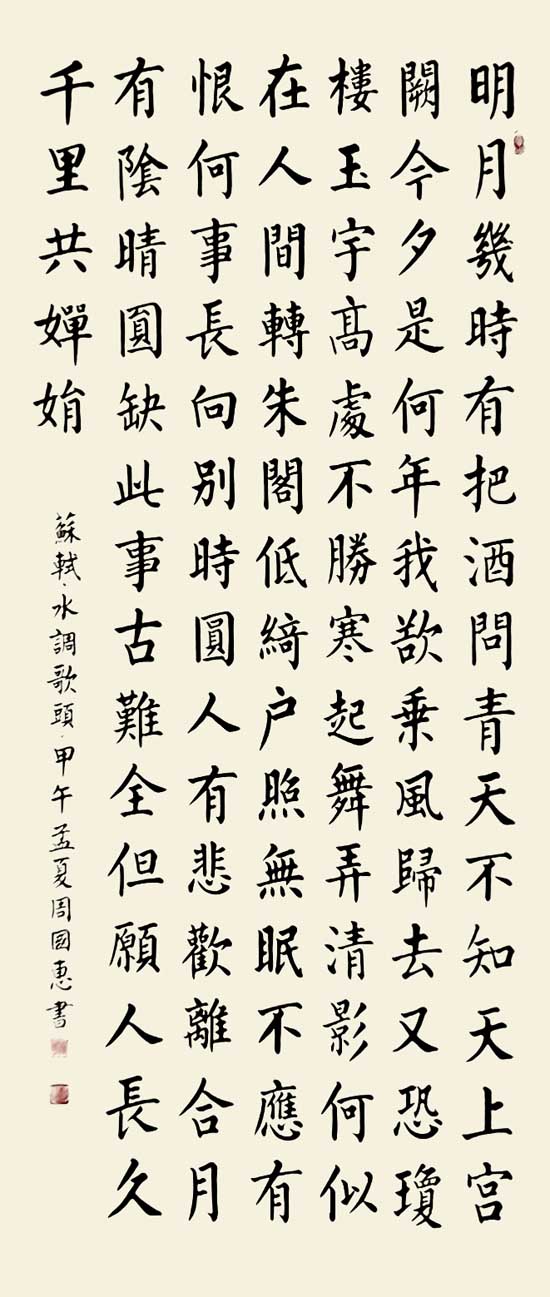 明月幾時有把酒問青天不知天上宮
闕今夕是何年我欲乘風歸去又恐瓊
樓玉宇髙處不勝寒起舞弄清影何似
在人間轉朱閣低綺户照無眠不應有
恨何事長向别時圓人有悲歡離合月
有陰晴圓缺此事古難全但願人長久
千里共嬋娟
蘇軾·水調歌頭·甲午孟夏周國惠書